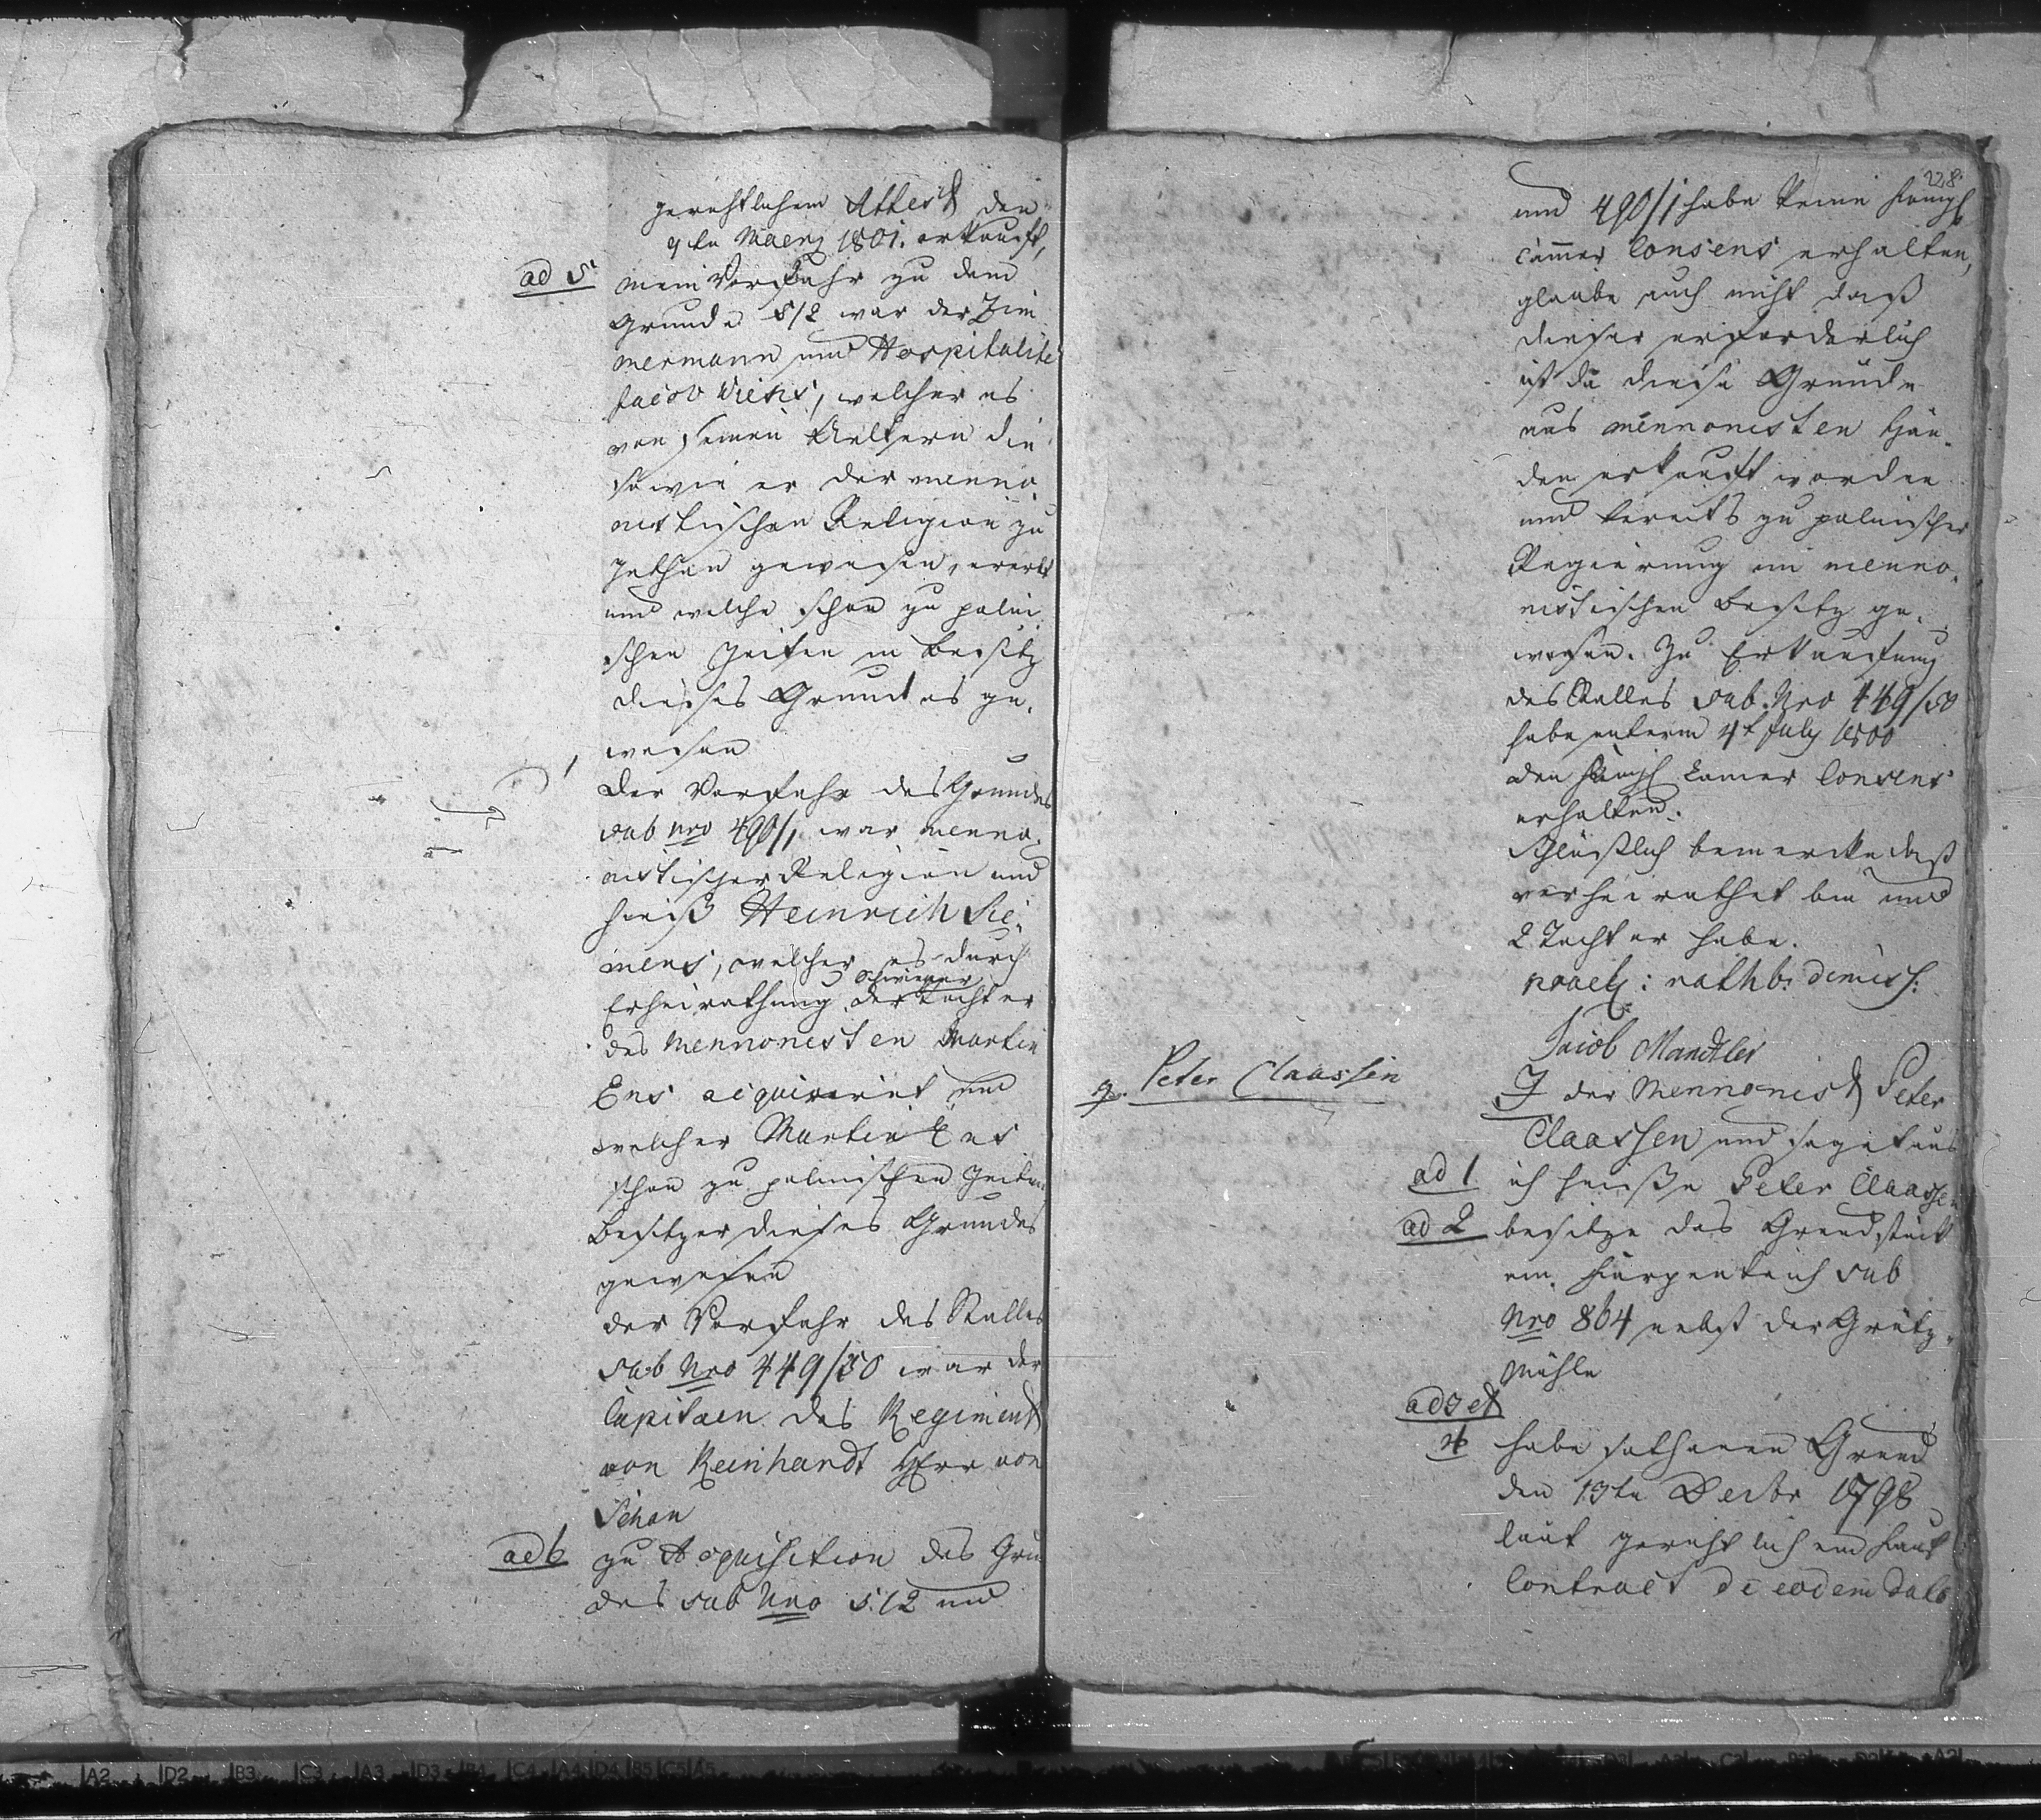 gerichtlichem Attest den
9ten Maerz 1801. erkauft,
ad 5 mein Vorfahr zu dem
Grunde 512 war der Zim
mermann und Hospitalite
Jacob Wiens, welcher es
von seinen Aeltern die
sowie er der menno
nistischen Religion zu
gethan gewesen, ererbt
und welche schon zu polni
schen Zeiten in Besitz
dieses Grundes ge,
wesen
Der Vorfahr des Grundes
sub Nro 490/1 war menno,
nistischer Religion und
hieß Heinrich Sie,
mens, welcher es durch
Schwieger
Erheirathung der Tochter
des Mennonisten Martin
Ens acquirirt und
welcher Martin Ens
schon zu polnischen Zeiten
Besitzer dieses Grundes
gewesen
der Vorfahr des Stalles
sub Nro 449/50 war der
Capitaen des Regiments
von Reinhardt Herr von
Schau
ad 6 zu Acquisition des Grun
des sub Nro 512 und
228.
und 490/1 habe keine Königl
Cammer Consens erhalten,
glaube auch nicht daß
dieser erforderlich
ist da diese Gründe
aus mennonisten Hän,
den erkauft worden
und bereits zu polnischer
Regierung im menno,
nistischen Besitz ge,
wesen. Zu Erkaufung
des Stalles sub Nro 449/50
habe unterm 4t July 1800
den Königl Camer Consens
erhalten.
Schlüslich bemercke daß
verheirathet bin und
2 Tochter habe.
prael: rathb: dimiss:
Jacob Mandtler
9. Peter Claassen
J der Mennonist Peter
Claassen und saget aus
ad 1 ich heiße Peter Claassen
ad 2 besitze das Grundstück
am Karpenteich sub
Nro 864 nebst der Grütz,
Mühle
ad 3 et
4 habe sothanen Grund
den 13ten Decbr 1798
laut gerichtlichem Kauf
Contract de eodem dato